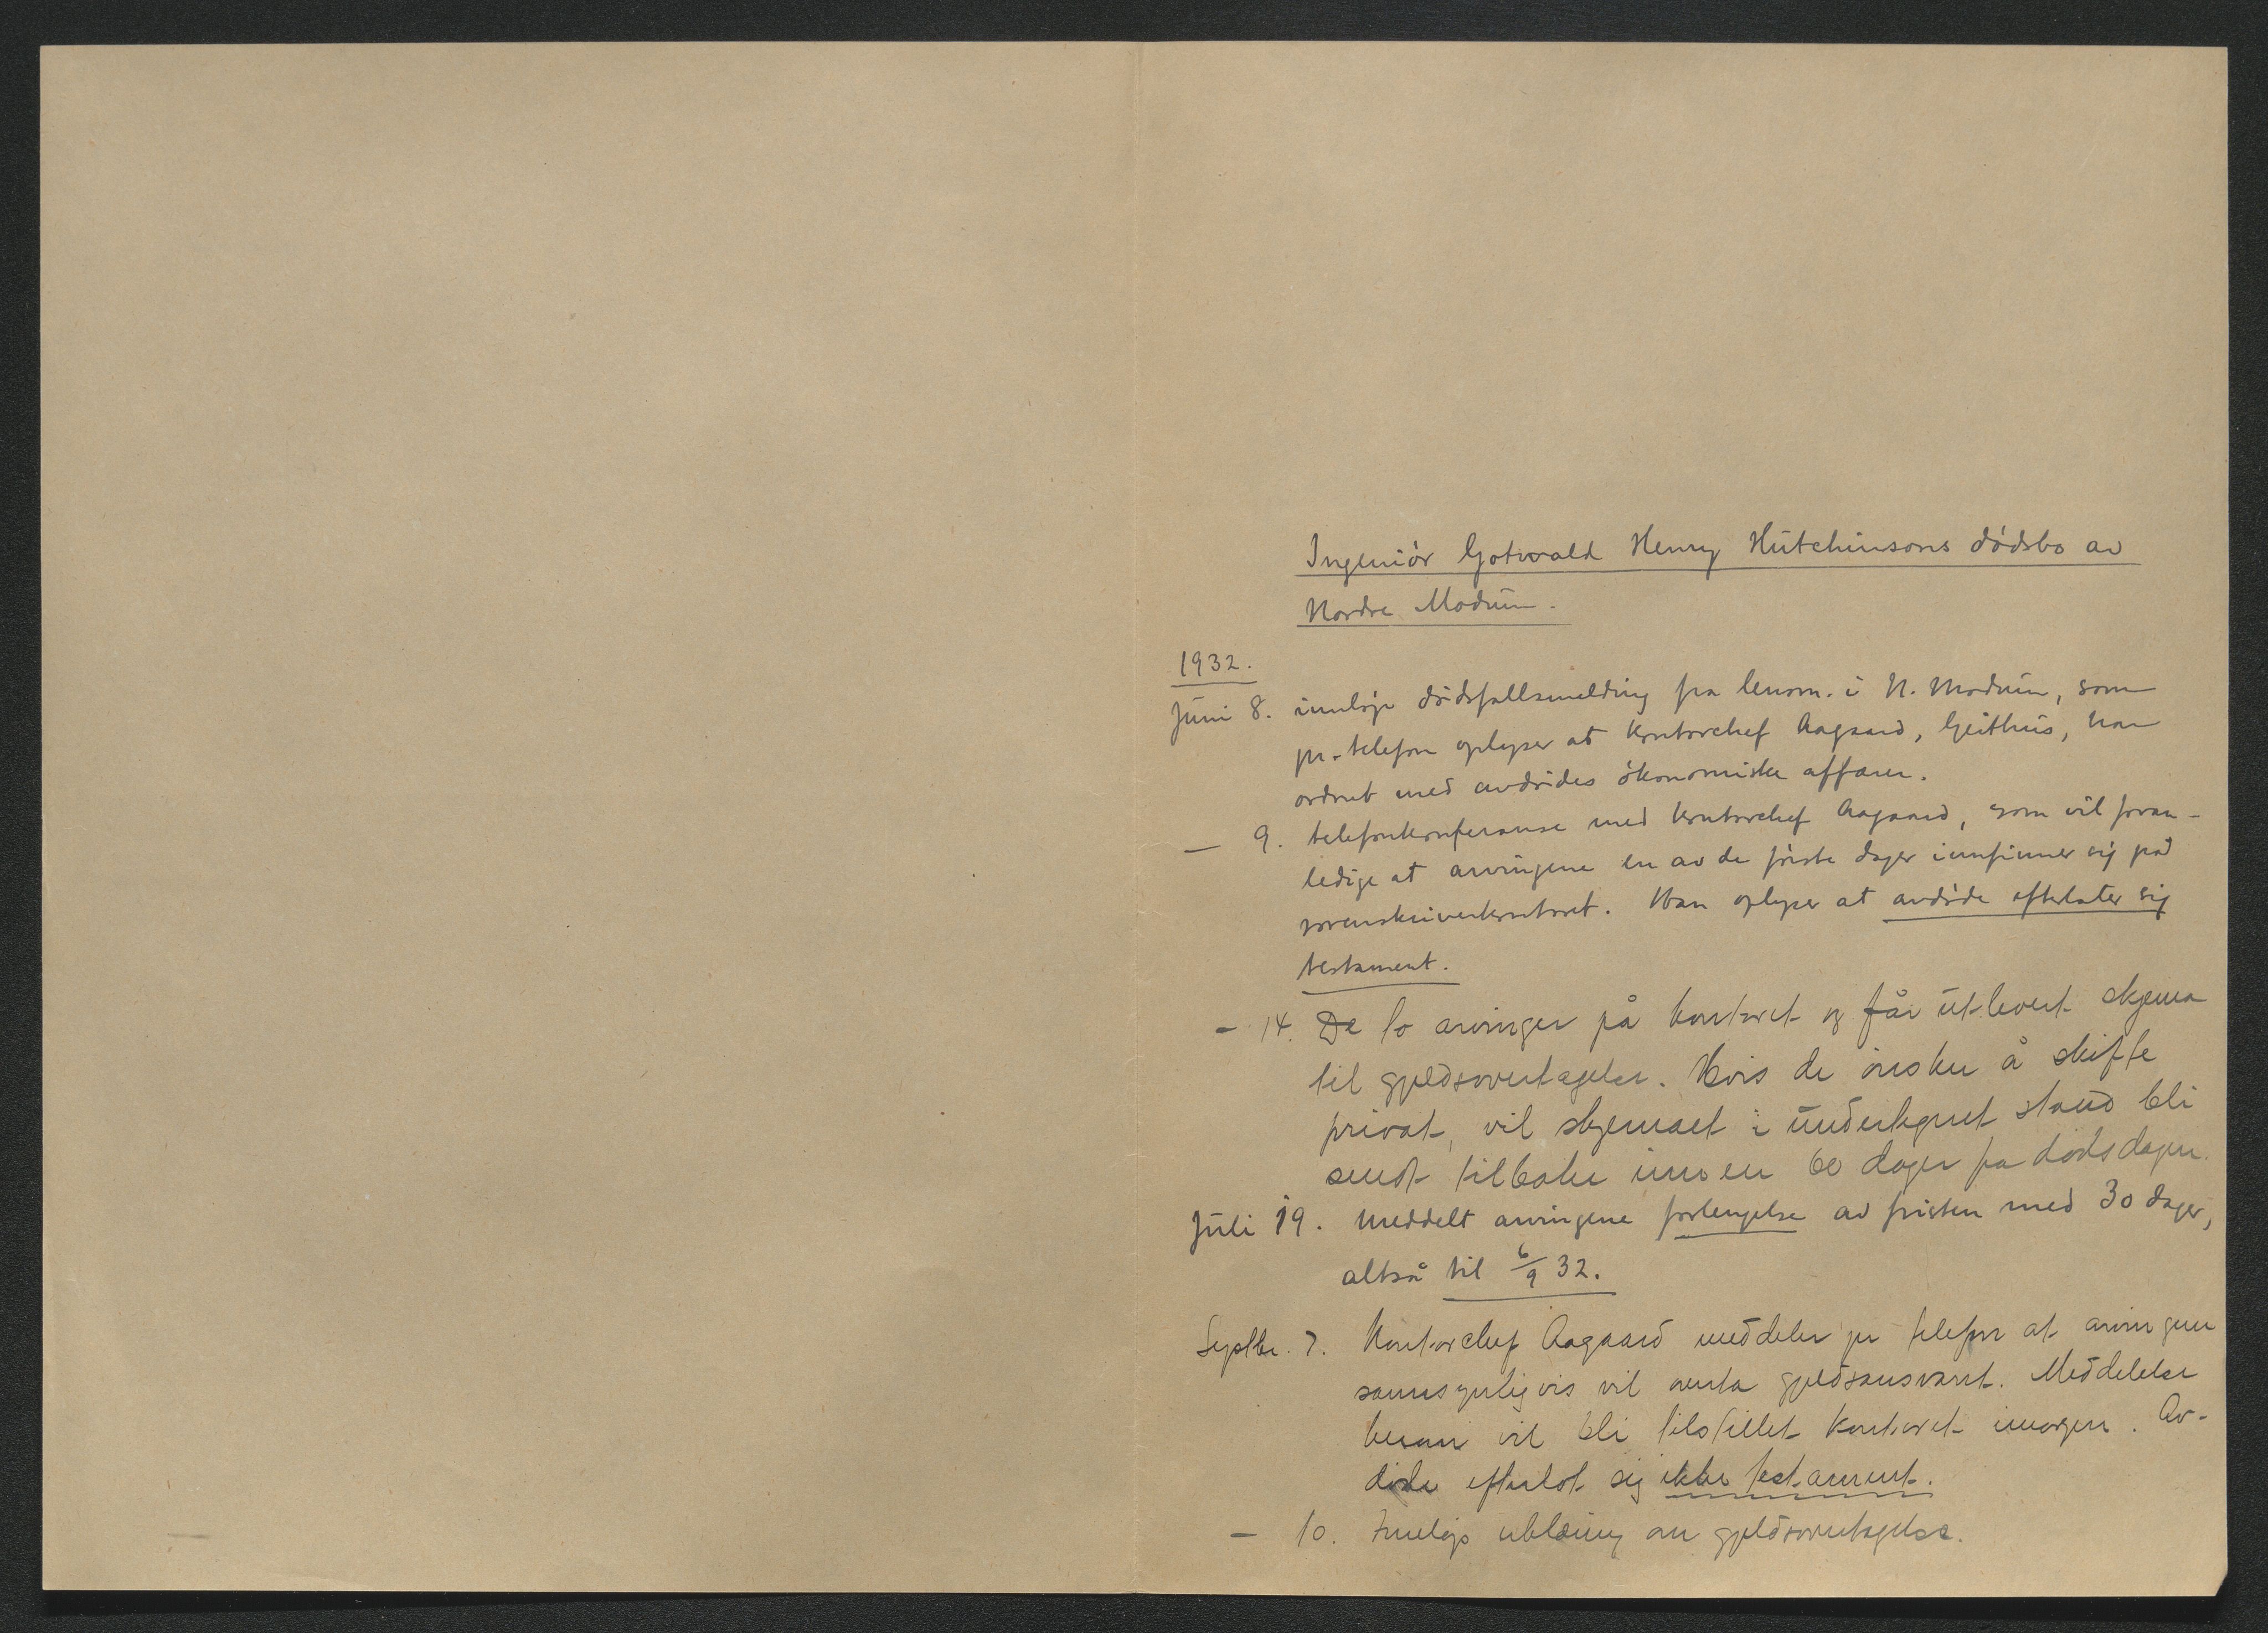 Ingeniör Gotwald Henry Hutchinsons dödsbo av
Nordre Modum.
1932.
Juni 8. innløp dödsfallsmelding fra lensm. i N. Modum, som
pr. telefon oplyser at kontorchef Aagaard, Geithus, har
ordnet med avdödes ökonomiske affærer.
— 9. telefonkonferanse med kontorchef Aagaard, som vil foran-
ledige at arvingene en av de förste dager innfinner sig på
sorenskriverkontoret. Han oplyser at avdöde efterlater sig
testament.
- 14. De to arvinger på kontoret og får utlevert skjema
til gjeldsovertagelse. Hvis de önsker å skifte
privat, vil skjemaet i undertegnet stand bli
sendt tilbake innen 60 dager fra dödsdagen.
Juli 19. Meddelt arvingene forlengelse av fristen med 30 dager,
altså til 6/9 32.
Septbr. 7. Kontorchef Aagaard meddeler pr telefon at arvingene
sannsynligvis vil overta gjeldsansvaret. Meddelelse
herom vil bli tilstillet kontoret imorgen. Av-
döde efterlot sig ikke testament.
— 10. Innløp erklæring om gjeldsovertagelse.